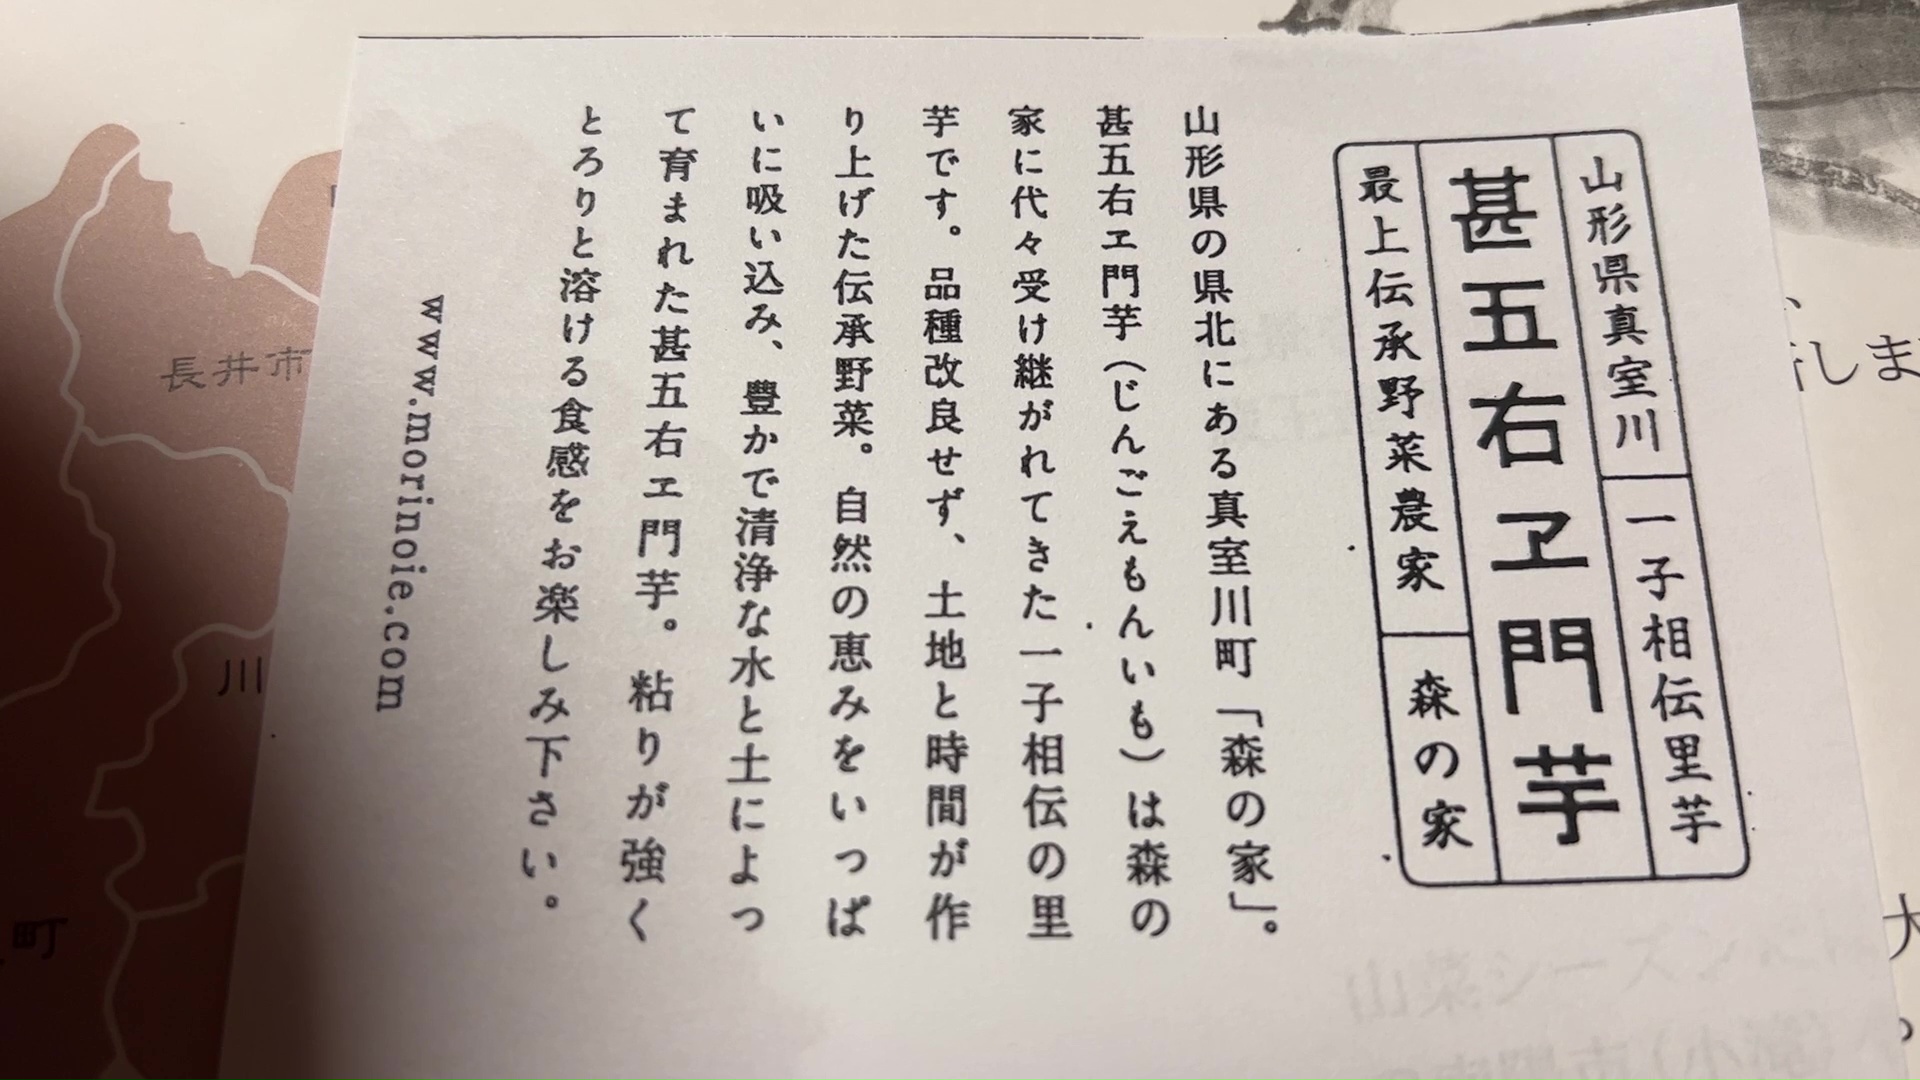 山形県真室川
一子相伝里芋
甚五右ヱ門芋
最上伝承野菜農家
森の家
山形県の県北にある真室川町「森の家」。
甚五右ヱ門芋(じんごえもんいも)は森の
家に代々受け継がれてきた一子相伝の里
芋です。品種改良せず、土地と時間が作
り上げた伝承野菜。自然の恵みをいっぱ
いに吸い込み、豊かで清浄な水と土によっ
て育まれた甚五右ヱ門芋。粘りが強く
とろりと溶ける食感をお楽しみ下さい。
www.morinoie.com
長井市
川
町
しま
大